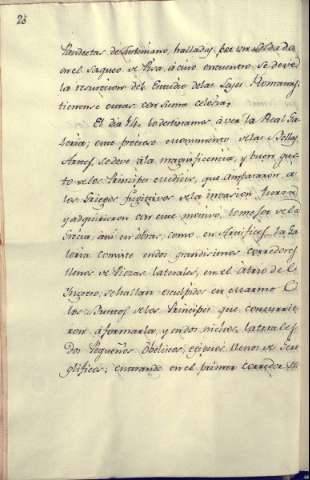 28
Pandectas de Justiniano, halladas por un Soldado
en el saqueo de Pisa, á cuio encuentro se deve
la resureccion del Estudio de las Leyes Romanas,
tienense estas con suma
El dia 14. lo destinamos á ver la Real Ga-
leria; este precioso monumento de las Bellas
Artes, se deve á la magnificencia, y buen gus-
to de los Principes eruditos, que ampararon, a
los Griegos fugitivos de la invasion Turca
y adquirieron con este motivo, lo mejor de la
Grecia, asi en obras, como en Artifices: la Ga-
leria consiste en dos grandisimos corredores
llenos de Piezas laterales, en el atrio de el
Ingreso, se hallan esculpidos en marmol
los Bustos de los Principes que concurrie-
ron á formarla, y en dos nichos laterales
dos Pequeños Obeliscos, egipcios llenos de Gero-
glificos; entrando en el primer corredor se